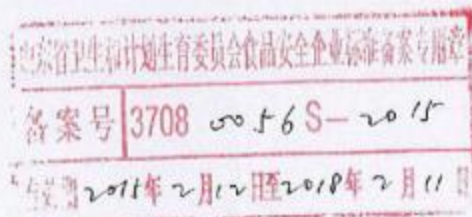 山东省卫生和计划生育委员会食品安全企业标准备案专用章
备案号 3708 0056 S— 2015
有效期 2015年2月12日至2018年2月11日